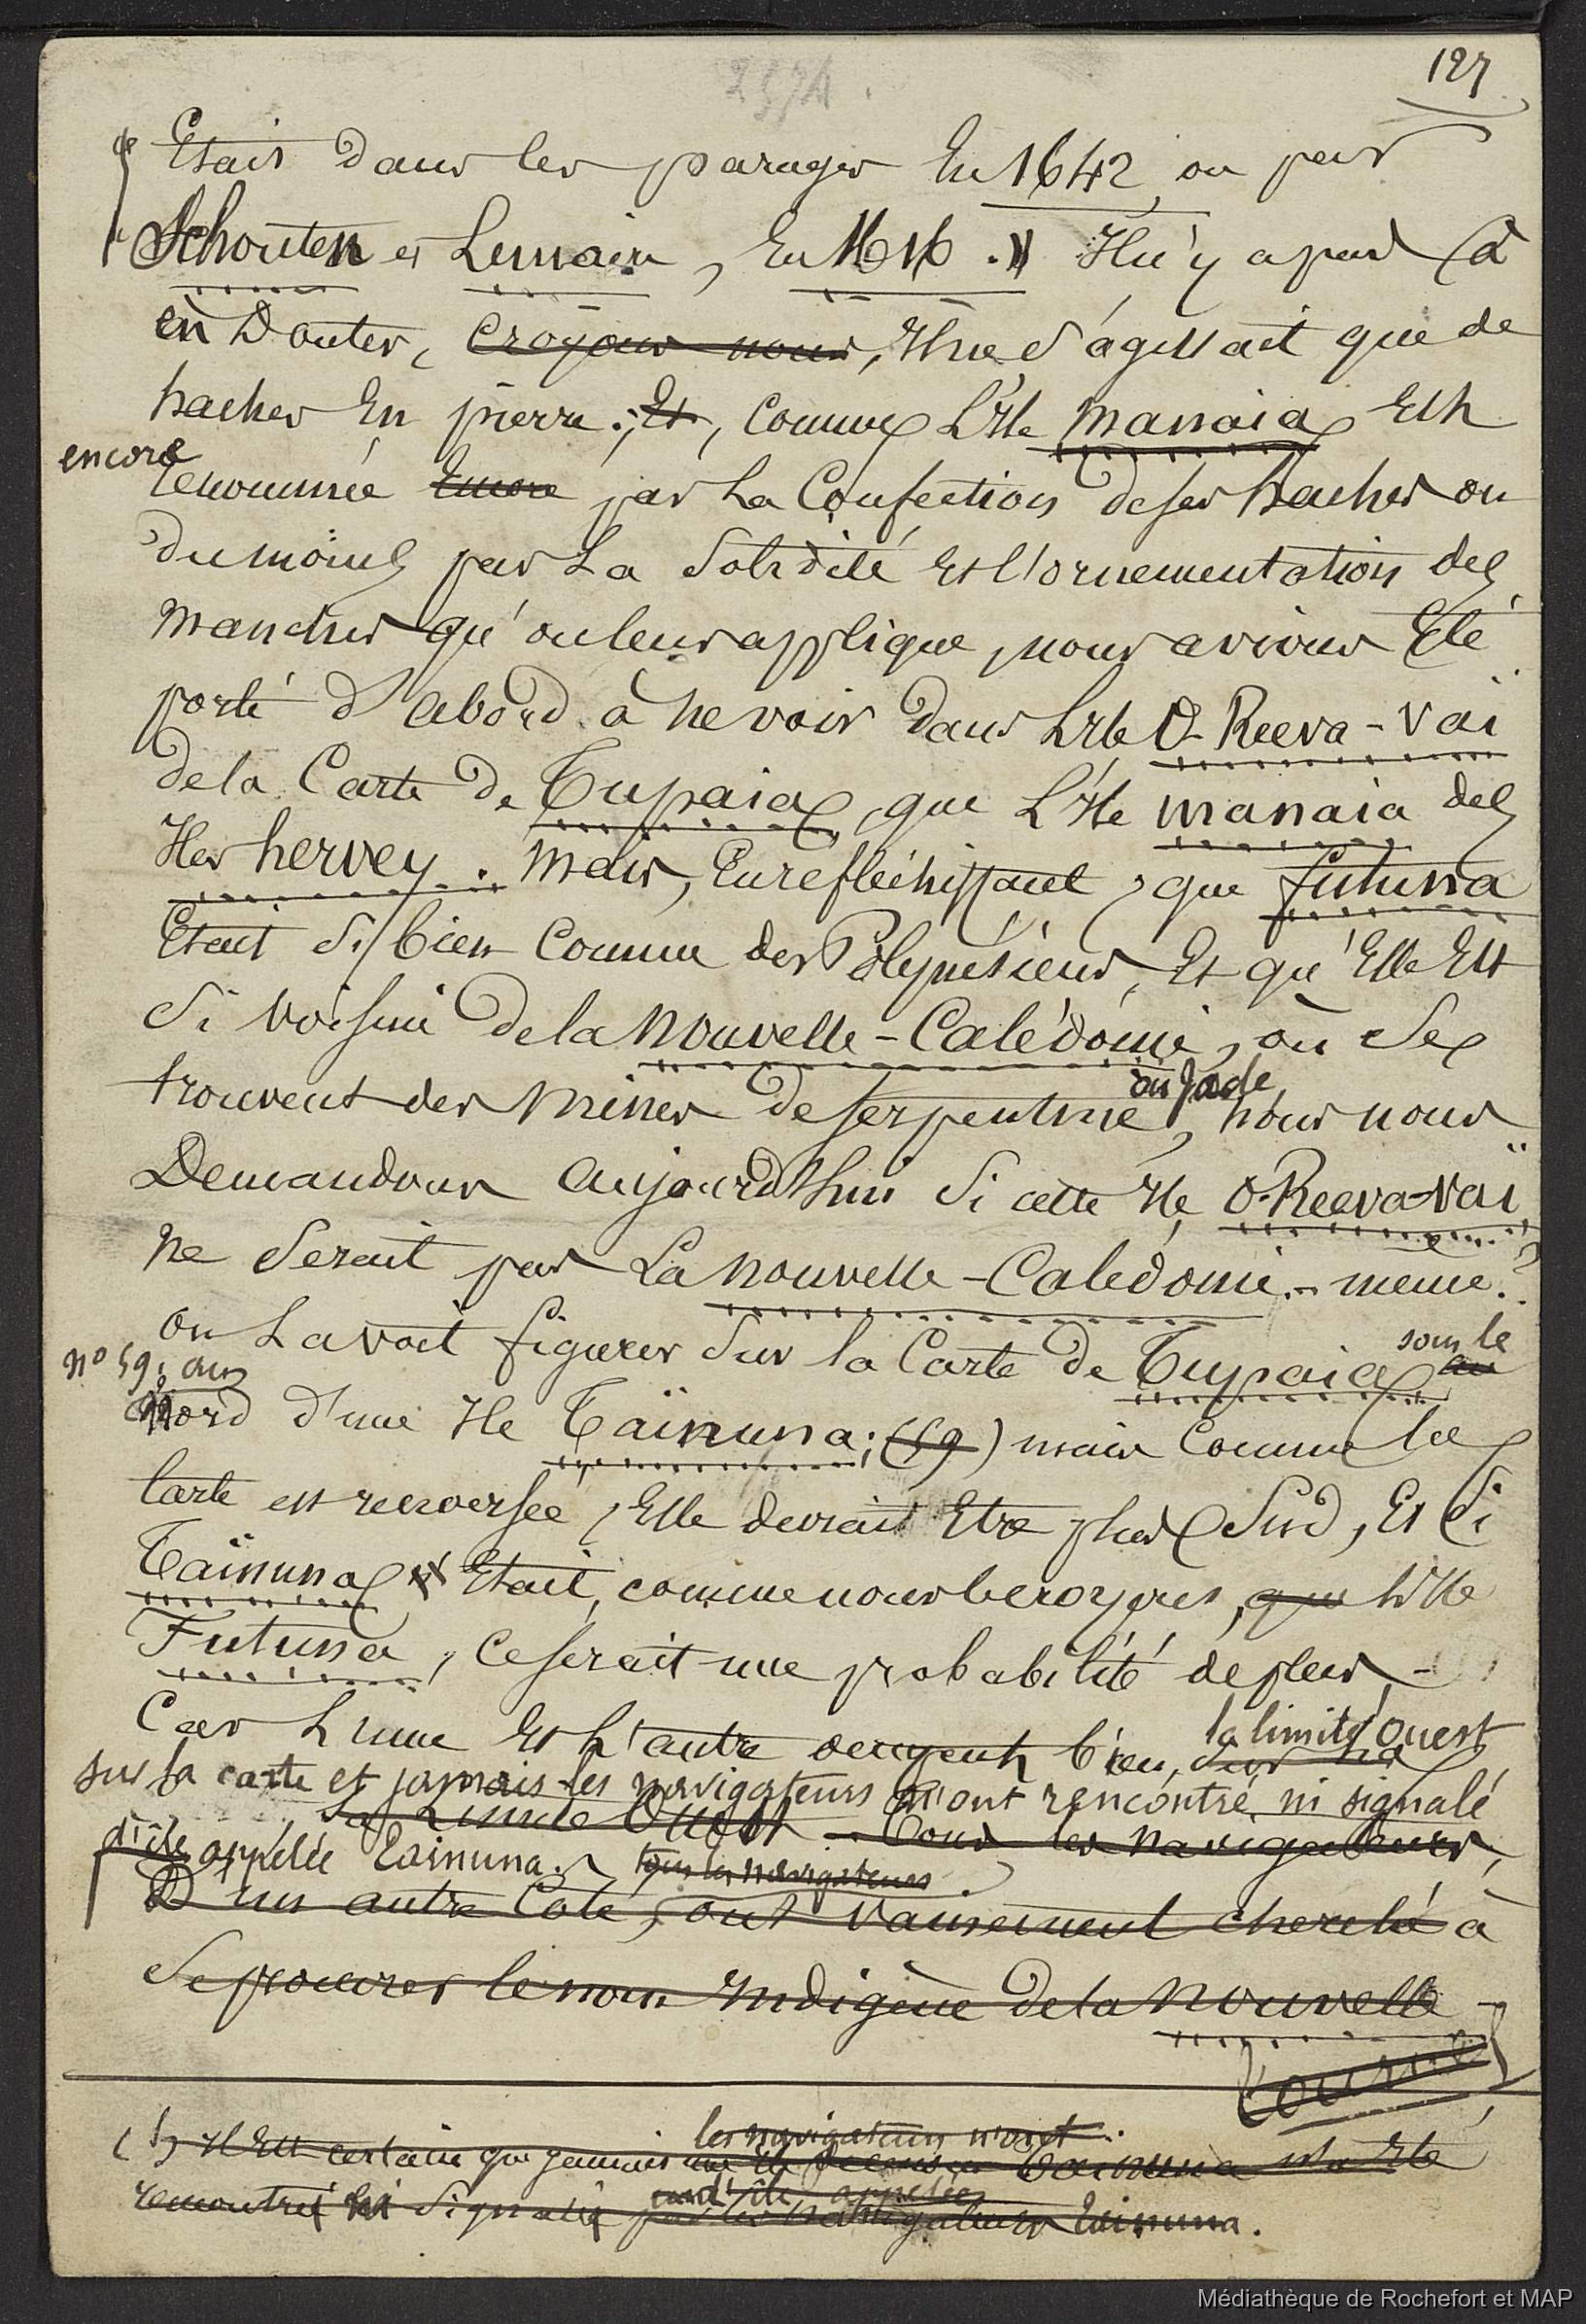 127
2374.
Etait dans les parages En 1642, ou par
Schouten et Lemaire, En 1616. » Il n'y a pas à
en Douter, croyons nous, Il ne s'agissait que de
haches En pierre; Et, Comme L'Ile Manaia Est
encore
renommée Encore par La Confection de ses haches ou
du moins par La Solidité Et l'ornementation des
manches qu'on leur applique, nous avions Eté
porté d'abord à ne voir Dans L'Ile O-Reeva-vaï
de la Carte De Tupaia, que L'Ile manaia des
Iles hervey. Mais, En refléchissant, que futuna
Etait si bien Connue des Polynésiens, Et qu'Elle Est
si voisine De la Nouvelle-Calédonie, où se
trouvent des mines de serpentine, nous nous
ou jade
Demandons aujourd'hui si cette Ile, O-Reeva-vaï
ne serait pas La nouvelle-Calédonie.- même?
On La voit figurer sur la Carte de Tupaia au
sous le
n° 59, au
Nord d'une Ile Taïnuna; (59) mais Comme la
Carte est renversée, Elle devrait Etre plus Sud, Et si
Taïnuna Etait, comme nous le croyons, que L'Ile
Futuna, ce serait une probabilité de plus -
Car L'une Et L'autre occupent bien, sur sa
la limite Ouest
sur la carte et jamais les navigateurs n'ont rencontré, ni signalé
la Limite Ouest - Tous les navigateurs,
d'île appelée Tainuna. tous les navigateurs
D'un autre Coté, ont vainement cherché à
Se procurer le nom Indigène de la Nouvelle-
(1) Il Est certain que jamais une Ile Tainuna n'a Eté
les navigateurs n'ont
rencontrée ni signalée par les navigateurs Tainuna.
d'île appelée
Médiathèque de Rochefort et MAP